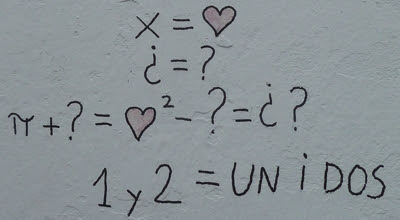 x = ♡
¿ = ?
π + ? = ♡² - ? = ¿?
1 y 2 = UNiDOS